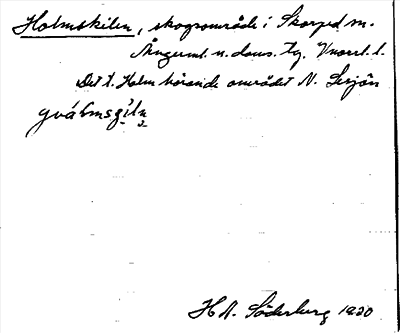 Holmskilen, skogsområde i Skorped sn.
Ångerml. n. doms. tg. Vnorrl. l.
Det t. Holm hörande området N. Lesjön
H A. Söderberg 1920